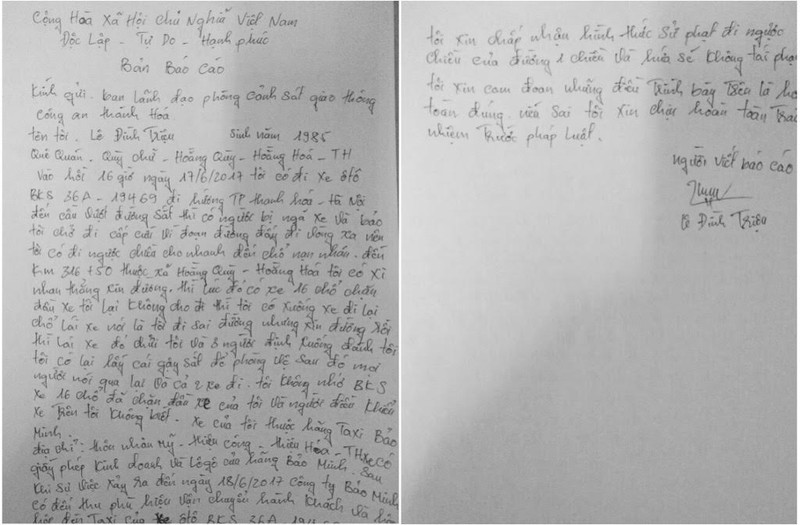 Cộng Hoà Xã Hội Chủ Nghĩa Việt Nam
Độc Lập - Tự Do - Hạnh phúc
Bản Báo Cáo
Kính gửi. ban lãnh đạo phòng cảnh sát giao thông
công an thanh Hoá
tên tôi. Lê Đình Triệu sinh năm 1985
Quê Quán - Quỳ chử - Hoằng Quỳ - Hoằng Hoá - TH
Vào hồi 16 giờ ngày 17/6/2017 tôi có đi xe ôtô
BKS 36A - 19469 đi hướng TP thanh hoá - Hà Nội
đến cầu vượt đường sắt thì có người bị ngã xe và báo
tôi chở đi cấp cứu vì đoạn đường đấy đi vòng xa nên
tôi có đi ngược chiều cho nhanh đến chổ nạn nhân. đến
Km 316 +50 thuộc xã Hoằng Quỳ - Hoằng Hoá tôi có xi
nhan thẳng xin đường. thì lúc đó có xe 16 chổ chặn
đầu xe tôi lại không cho đi thì tôi có xuống xe đi lại
chổ lái xe nói là tôi đi sai đường nhưng xin đường rồi
thì lái xe đó chửi tôi và 3 người định xuống đánh tôi
tôi có lại lấy cái gậy sắt để phòng vệ sau đó mọi
người nói qua lại và cả 2 xe đi. tôi không nhớ BKS
xe 16 chổ đã chặn đầu xe của tôi và người điều khiển
xe trên tôi không biết. xe của tôi thuộc hãng Taxi Bảo
Minh.
địa chỉ: thôn nhân Mỹ - thiệu công - thiệu Hoá - TH xe có
giấy phép kinh doanh và lôgô của hãng Bảo Minh. sau
khi sự việc xảy ra đến ngày 18/6/2017 công ty Bảo Minh
có đến thu phù hiệu vận chuyển hành khách và
đến Taxi của xe ôtô BKS 36A
tôi xin chấp nhận hình thức sử phạt đi ngược
chiều của đường 1 chiều và hứa sẽ không tái phạm
tôi xin cam đoan những điều trình bày trên là
toàn đúng. nếu sai tôi xin chịu hoàn toàn
nhiệm trước pháp luật.
người viết báo cáo
Lê Đình Triệu